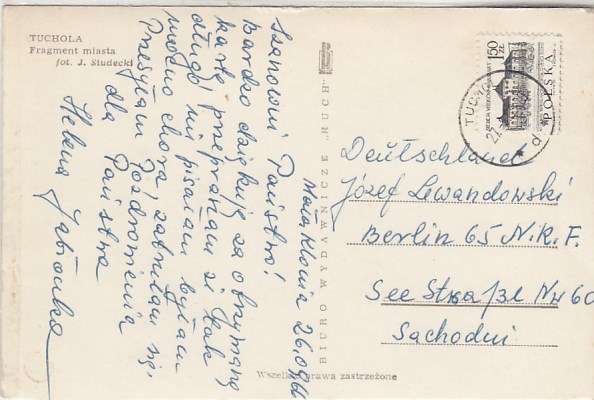 TUCHOLA
Fragment miasta
fot. J. Siudecki
Mała Klonia 26.
Szanowni Państwo!
Bardzo dziękuję za otrzymaną
kartę przepraszam że tak
długo nie pisałam byłam
mocno chora,
Przesyłam Pozdrowienia
dla Państwa
Helena
BIURO WYDAWNICZE "RUCH"
1,50 ZŁ
POLSKA
TUCHO
Deutschland
Józef Lewandowski
Berlin 65 N.R.F.
See Straße Nr 60
Sachodni
Wszelkie prawa zastrzeżone